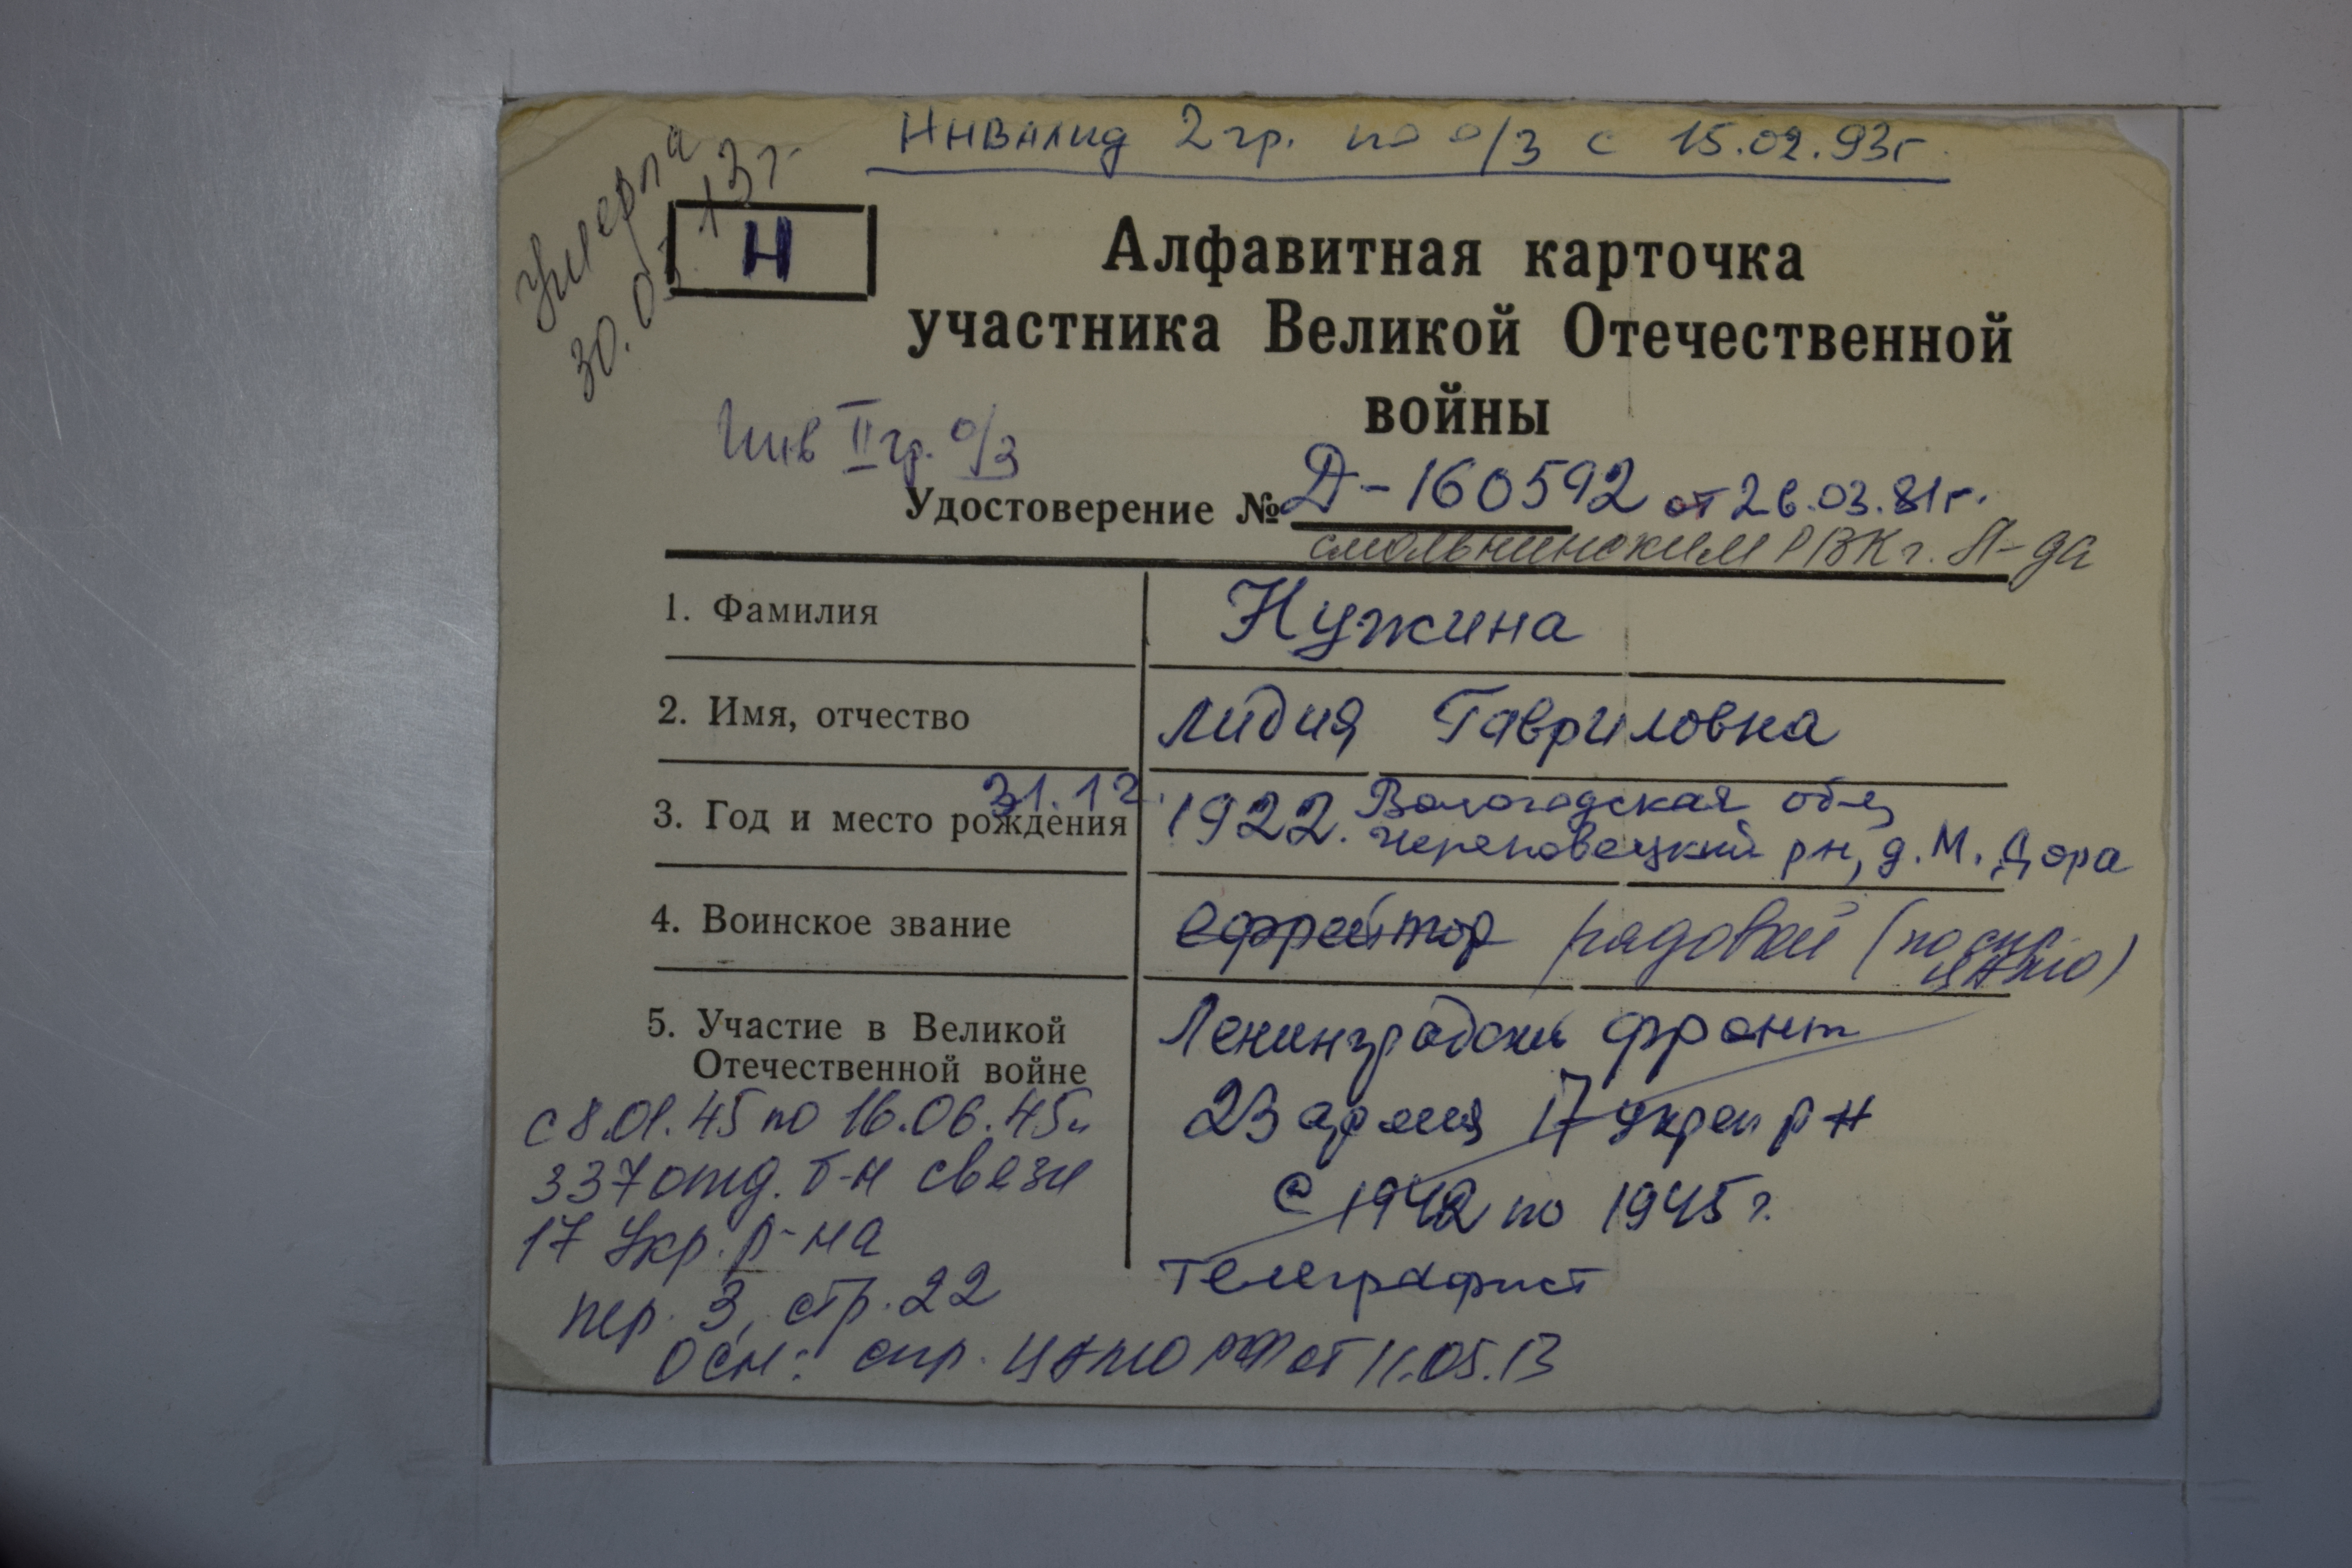 Инвалид 2 гр. по о/з с 15.02.93г.
Умерла
30. 13г.
Н
Алфавитная карточка
участника Великой Отечественной
войны
Инв II гр. о/з
Удостоверение № Д-160592 от 26.03.81г.
смольнинским РВК г. Л-да
1. Фамилия Нужина
2. Имя, отчество Лидия Гавриловна
3. Год и место рождения 31.12. 1922. Вологодская обл,
Череповецкий рн, д. М. Дора
4. Воинское звание ефрейтор рядовой (по спр.
ЦАМО)
5. Участие в Великой
Отечественной войне
Ленинградский фронт
23 армия 17 укреп р-н
с 1942 по 1945 г.
телеграфист
с 8.01.45 по 16.06.45г
337 отд. б-н связи
17 Укр. р-на
пер. 3, стр. 22
Осн: спр. ЦАМО РФ от 11.05.13